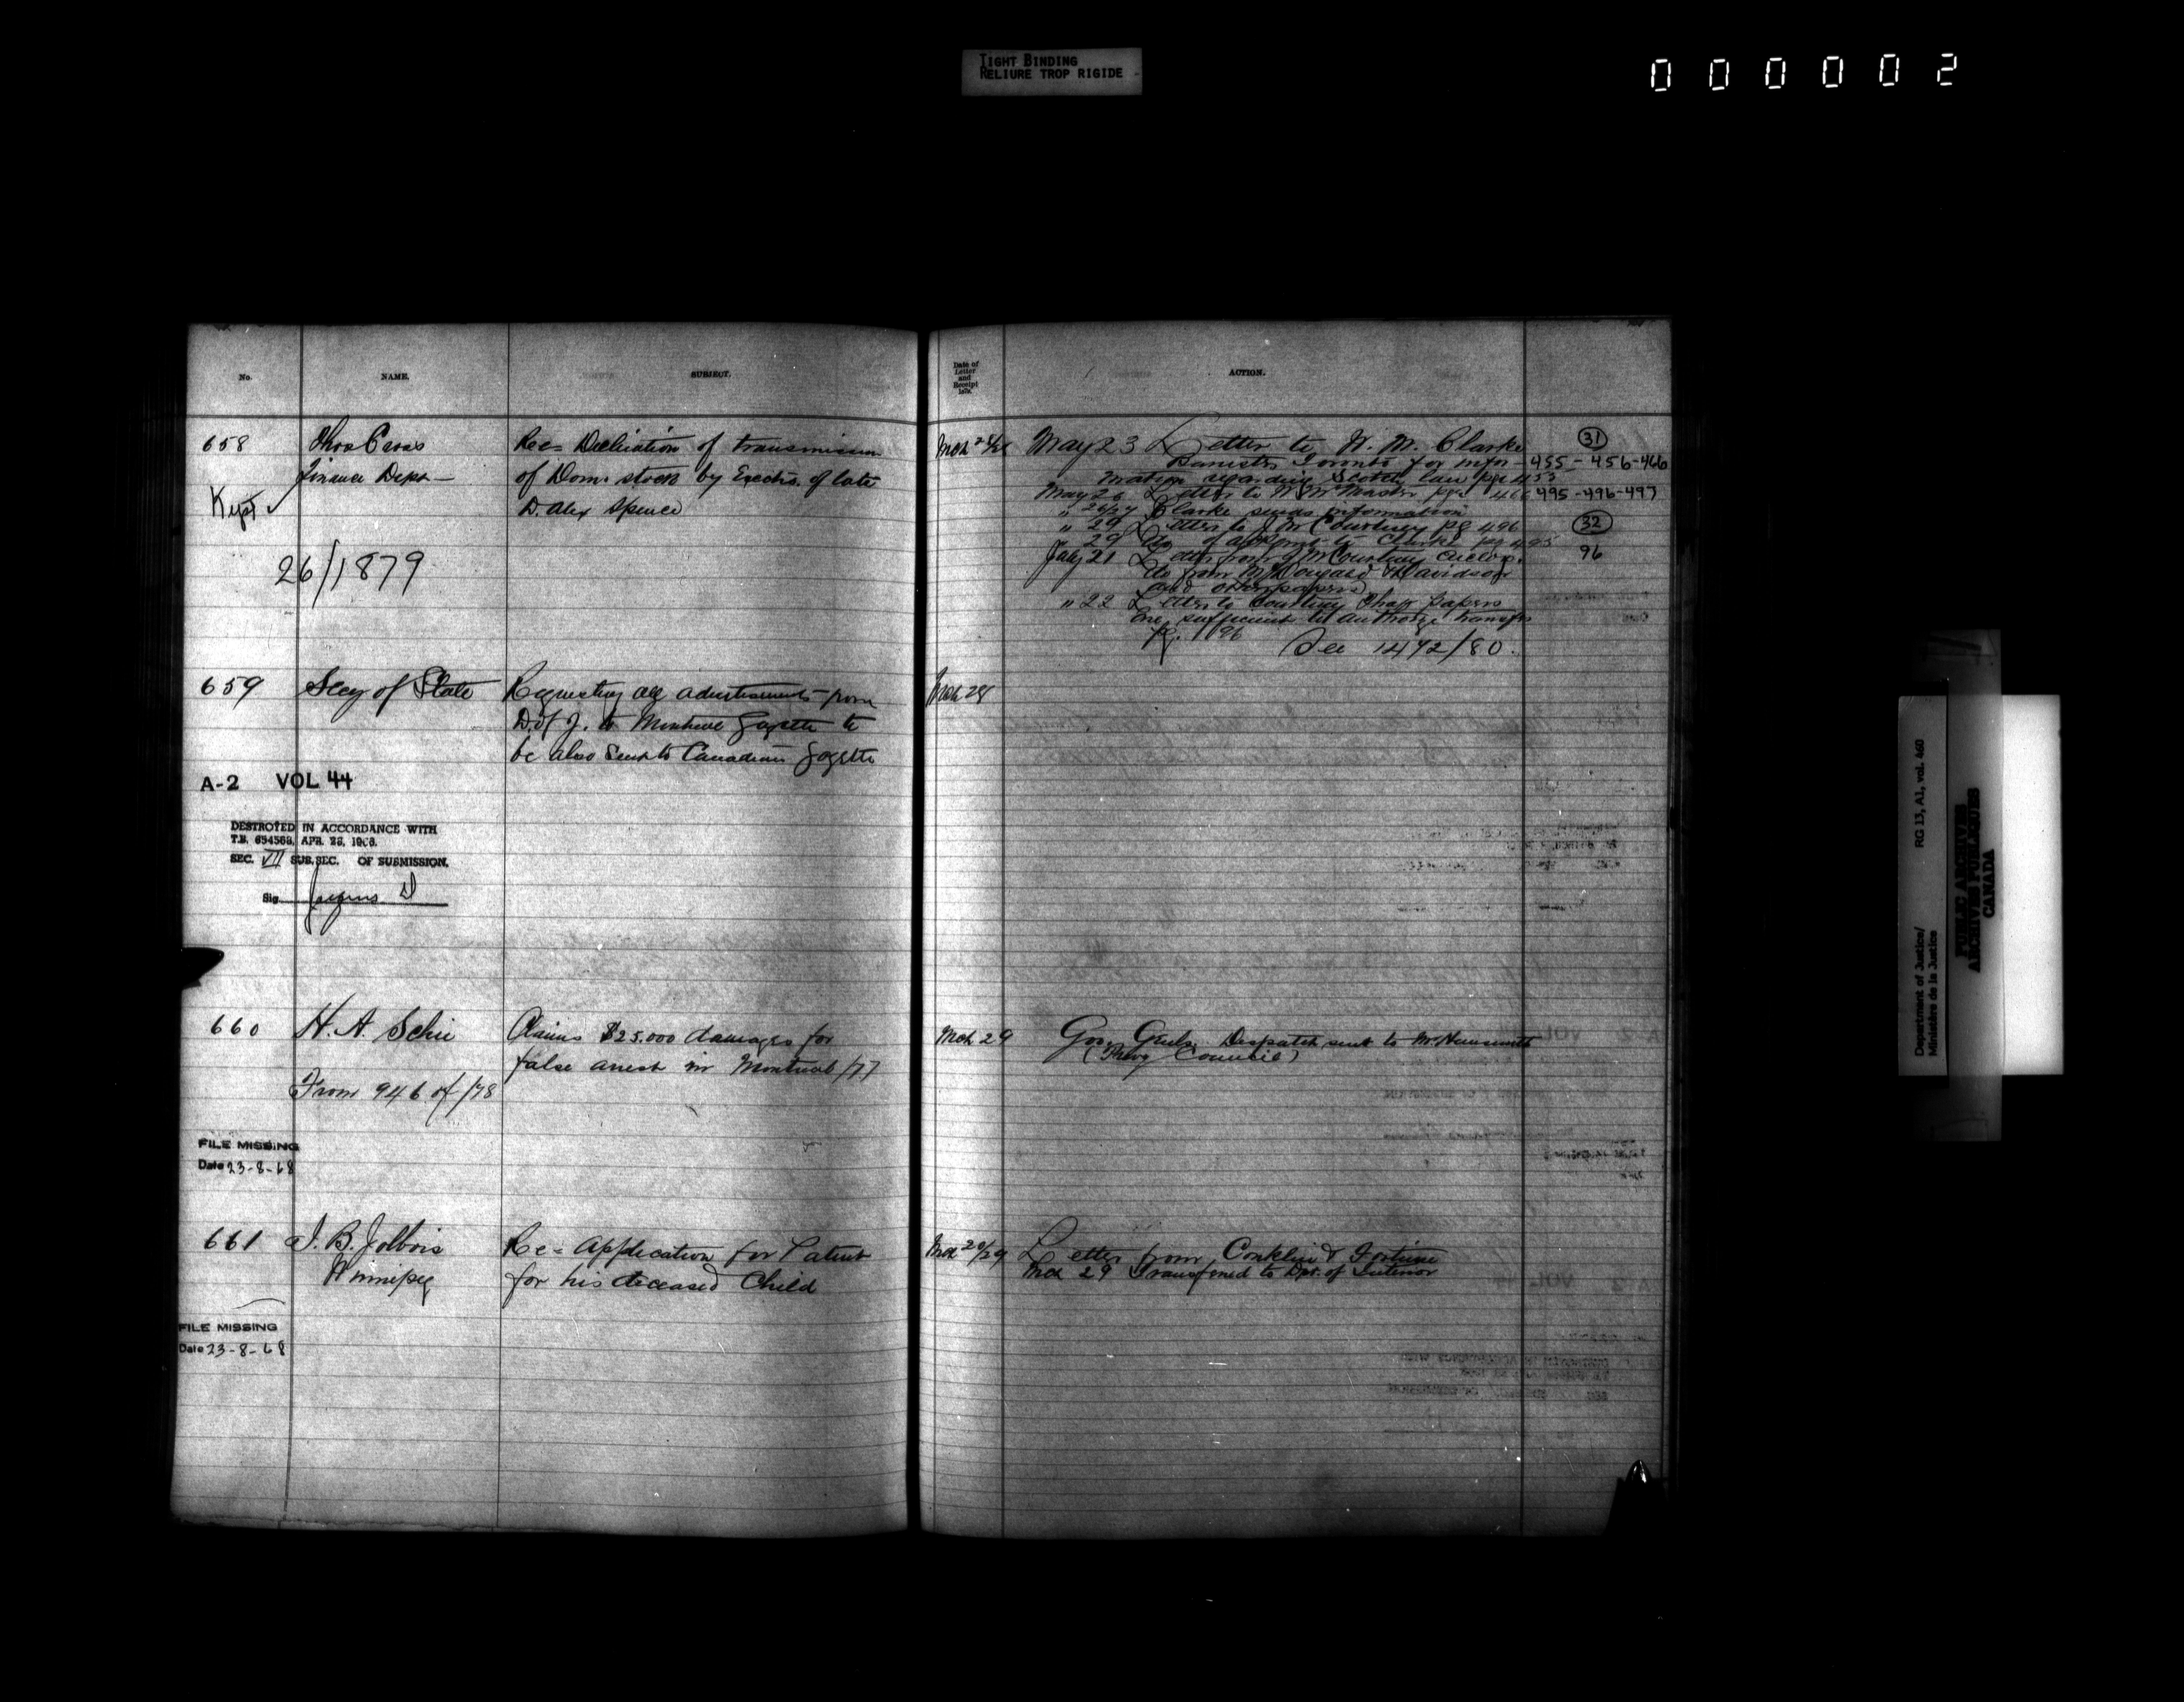 TIGHT BINDING
RELIURE TROP RIGIDE
000002
No.
NAME.
SUBJECT.
Date of
Letter
and
Receipt
ACTION.
658
Thos Cross
Finance Dept
Kept
26/1879
Re= Declaration of transmission
of Dom. stock by Exectrs. of late
D. Alex Spence
May 23 Letter to W. M. Clarke
Barrister Toronto for infor-
mation regarding Scotch law pge 453
May 26 Letter to W McMaster pge 466
" 26/27 Clarke sends information
" 29 Letter to J M Courtney pg 496
" 29 Do to Clarke pg 495
July 21 Letter from J M Courtney enclos.
do from McDougard & Davidson
and other papers
" 22 Letter to Courtney that papers
are sufficient to authorize transfer
pg. 96
See 1472/80.
31
455-456-466
495-496-497
32
96
659
Secy of State
Requesting all advertisements from
D. of J. to Montreal Gazette to
be also sent to Canadian Gazette
Mch 28
A-2 VOL 44
DESTROYED IN ACCORDANCE WITH
T.B. 654568, APR. 28, 1966.
SEC. VII SUB.SEC. OF SUBMISSION.
Sig.
660
H. A. Schu
From 946 of /78
Claims $25.000 damages for
false arrest in Montreal /77
Mch 29
Gov. Genls. Despatch sent to Mr.
(Privy Council)
FILE MISSING
Date 23-8-68
661
J. B. Jolbois
Winnipeg
Re= Application for Patent
for his deceased Child
Mch 20/29
Letter from Conklin & Fortune
Mch 29 Transferred to Dpt. of Interior
FILE MISSING
Date 23-8-68
Department of Justice/
Ministère de la Justice
RG 13, A1, vol. 460
PUBLIC ARCHIVES
ARCHIVES PUBLIQUES
CANADA